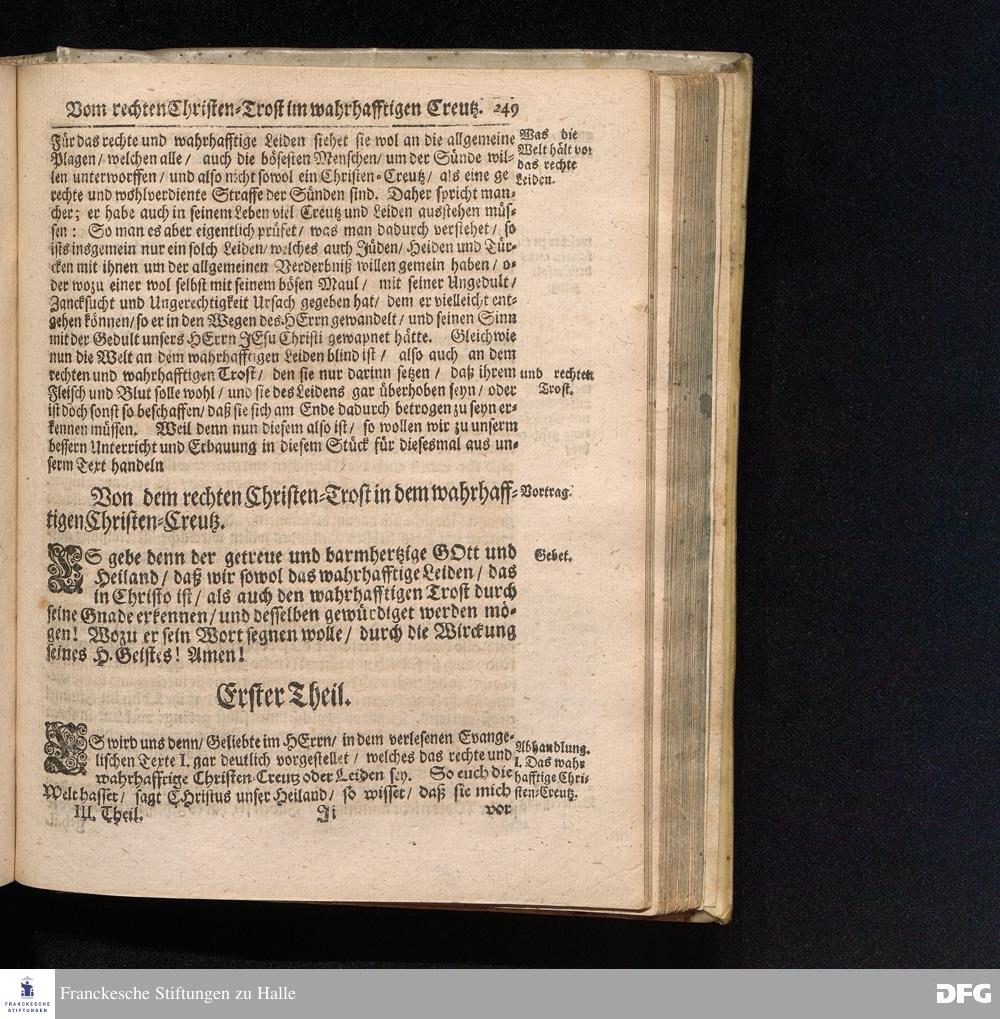 Vom rechten Christen-Trost im wahrhafftigen Creutz. 249
Für das rechte und wahrhafftige Leiden siehet sie wol an die allgemeine
Plagen / welchen alle / auch die bösesten Menschen / um der Sünde wil-
len unterworffen / und also nicht sowol ein Christen-Creutz / als eine ge
rechte und wohlverdiente Straffe der Sünden sind. Daher spricht man-
cher; er habe auch in seinem Leben viel Creutz und Leiden ausstehen müs-
sen: So man es aber eigentlich prüfet / was man dadurch verstehet / so
ists insgemein nur ein solch Leiden / welches auch Jüden / Heiden und Tür-
cken mit ihnen um der allgemeinen Verderbniß willen gemein haben / o-
der wozu einer wol selbst mit seinem bösen Maul / mit seiner Ungedult /
Zancksucht und Ungerechtigkeit Ursach gegeben hat / dem er vielleicht ent-
gehen können / so er in den Wegen des HErrn gewandelt / und seinen Sinn
mit der Gedult unsers HErrn JEsu Christi gewapnet hätte. Gleichwie
nun die Welt an dem wahrhafftigen Leiden blind ist / also auch an dem
rechten und wahrhafftigen Trost / den sie nur darinn setzen / daß ihrem
Fleisch und Blut solle wohl / und sie des Leidens gar überhoben seyn / oder
ist doch sonst so beschaffen / daß sie sich am Ende dadurch betrogen zu seyn er-
kennen müssen. Weil denn nun diesem also ist / so wollen wir zu unserm
bessern Unterricht und Erbauung in diesem Stück für diesesmal aus un-
serm Text handeln
Was die
Welt hält vor
das rechte
Leiden.
und rechten
Trost.
Von dem rechten Christen-Trost in dem wahrhaff-
tigen Christen-Creutz.
Vortrag.
ES gebe denn der getreue und barmhertzige GOtt und
Heiland / daß wir sowol das wahrhafftige Leiden / das
in Christo ist / als auch den wahrhafftigen Trost durch
seine Gnade erkennen / und desselben gewürdiget werden mö-
gen! Wozu er sein Wort segnen wolle / durch die Wirckung
seines H. Geistes! Amen!
Gebet.
Erster Theil.
ES wird uns denn / Geliebte im HErrn / in dem verlesenen Evange-
lischen Texte I. gar deutlich vorgestellet / welches das rechte und
wahrhafftige Christen-Creutz oder Leiden sey. So euch die
Welt hasset / sagt CHristus unser Heiland / so wisset / daß sie mich
Abhandlung.
I. Das wahr
hafftige Chri-
sten-Creutz.
III. Theil. Ji vor
FRANCKESCHE
STIFTUNGEN
Franckesche Stiftungen zu Halle
DFG